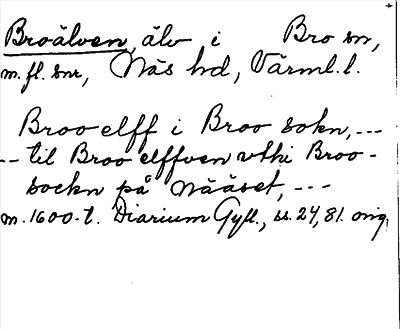 Broälven, älv i Bro sn,
m. fl. snr, Näs hd, Värml. l.
Broo elff i Broo sokn, ---
-- til Broo elffven vthi Broo-
sockn på Nääset, ---
m. 1600-t. Diarium Gyll., ss. 24, 81. orig.